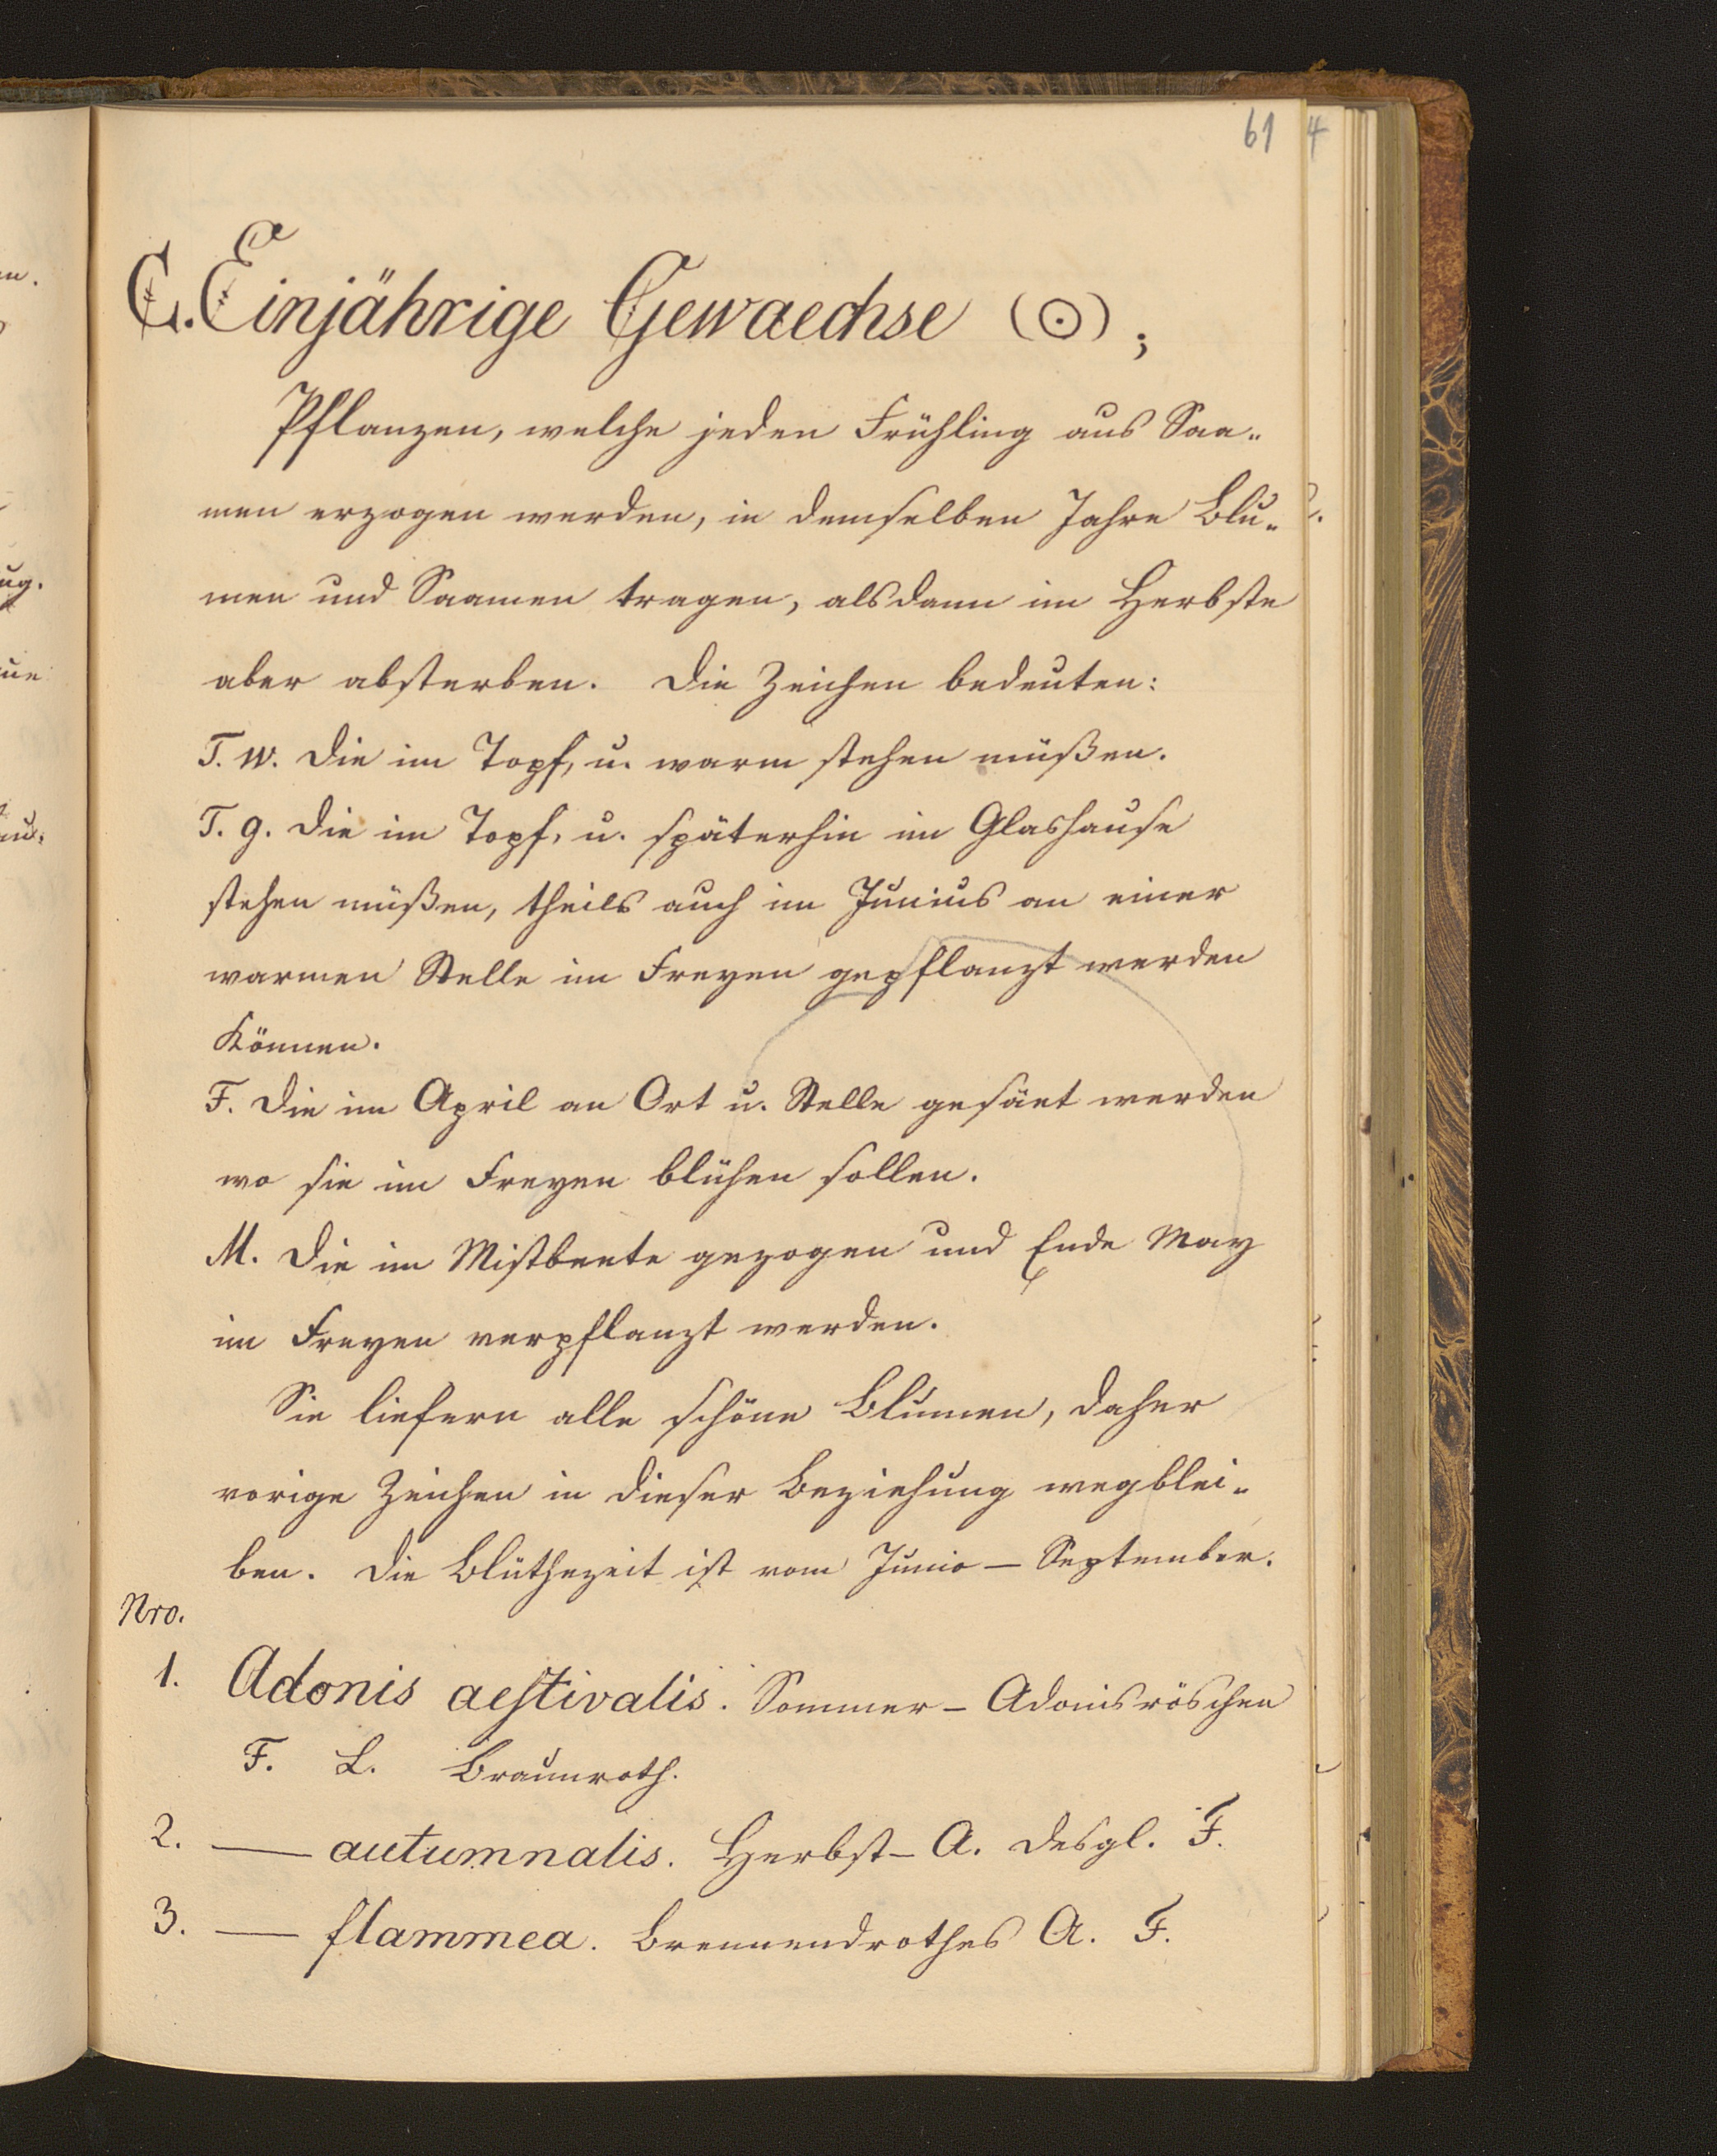 61
C. Einjährige Gewaechse (☉);
Pflanzen, welche jeden Frühling aus Saa-
men erzogen werden, in demselben Jahre Blu-
men und Saamen tragen, alsdann im Herbste
aber absterben. Die Zeichen bedeuten:
T. w. die im Topf, u. warm stehen müßen.
T. g. die im Topf, u. späterhin im Glashause
stehen müßen, theils auch im Junius an einer
warmen Stelle im Freyen gepflanzt werden
können.
F. die im April an Ort u. Stelle gesäet werden
wo sie im Freyen blühen sollen.
M. die im Mistbeete gezogen und Ende May
im Freyen verpflanzt werden.
Sie liefern alle schöne Blumen, daher
vorige Zeichen in dieser Beziehung wegblei-
ben. Die Blüthezeit ist vom Junio – September.
Nro.
1. Adonis aestivalis. Sommer – Adonisröschen
F. L. Braunroth.
2. — autumnalis. Herbst – A. desgl. F.
3. — flammea. Brennendrothes A. F.